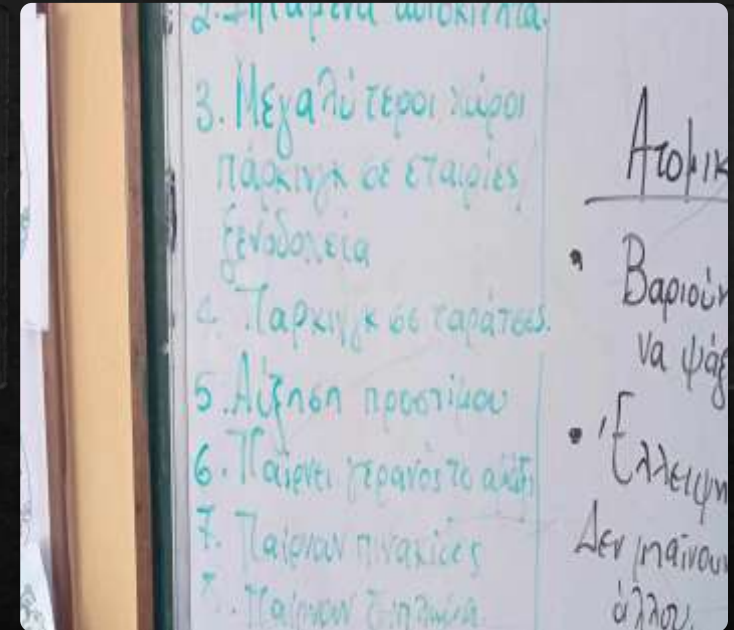 2. Ιπτάμενα αυτοκίνητα.
3. Μεγαλύτεροι χώροι
πάρκινγκ σε εταιρίες
ξενοδοχεία
4. Πάρκινγκ σε ταράτσες.
5. Αύξηση προστίμου
6. Παίρνει γερανός το αμάξι
7. Παίρνουν πινακίδες
8. Παίρνουν δίπλωμα
Ατομικ
• Βαριούν
να ψάξ
• Έλλειψη
Δεν μπαίνουν
άλλου.